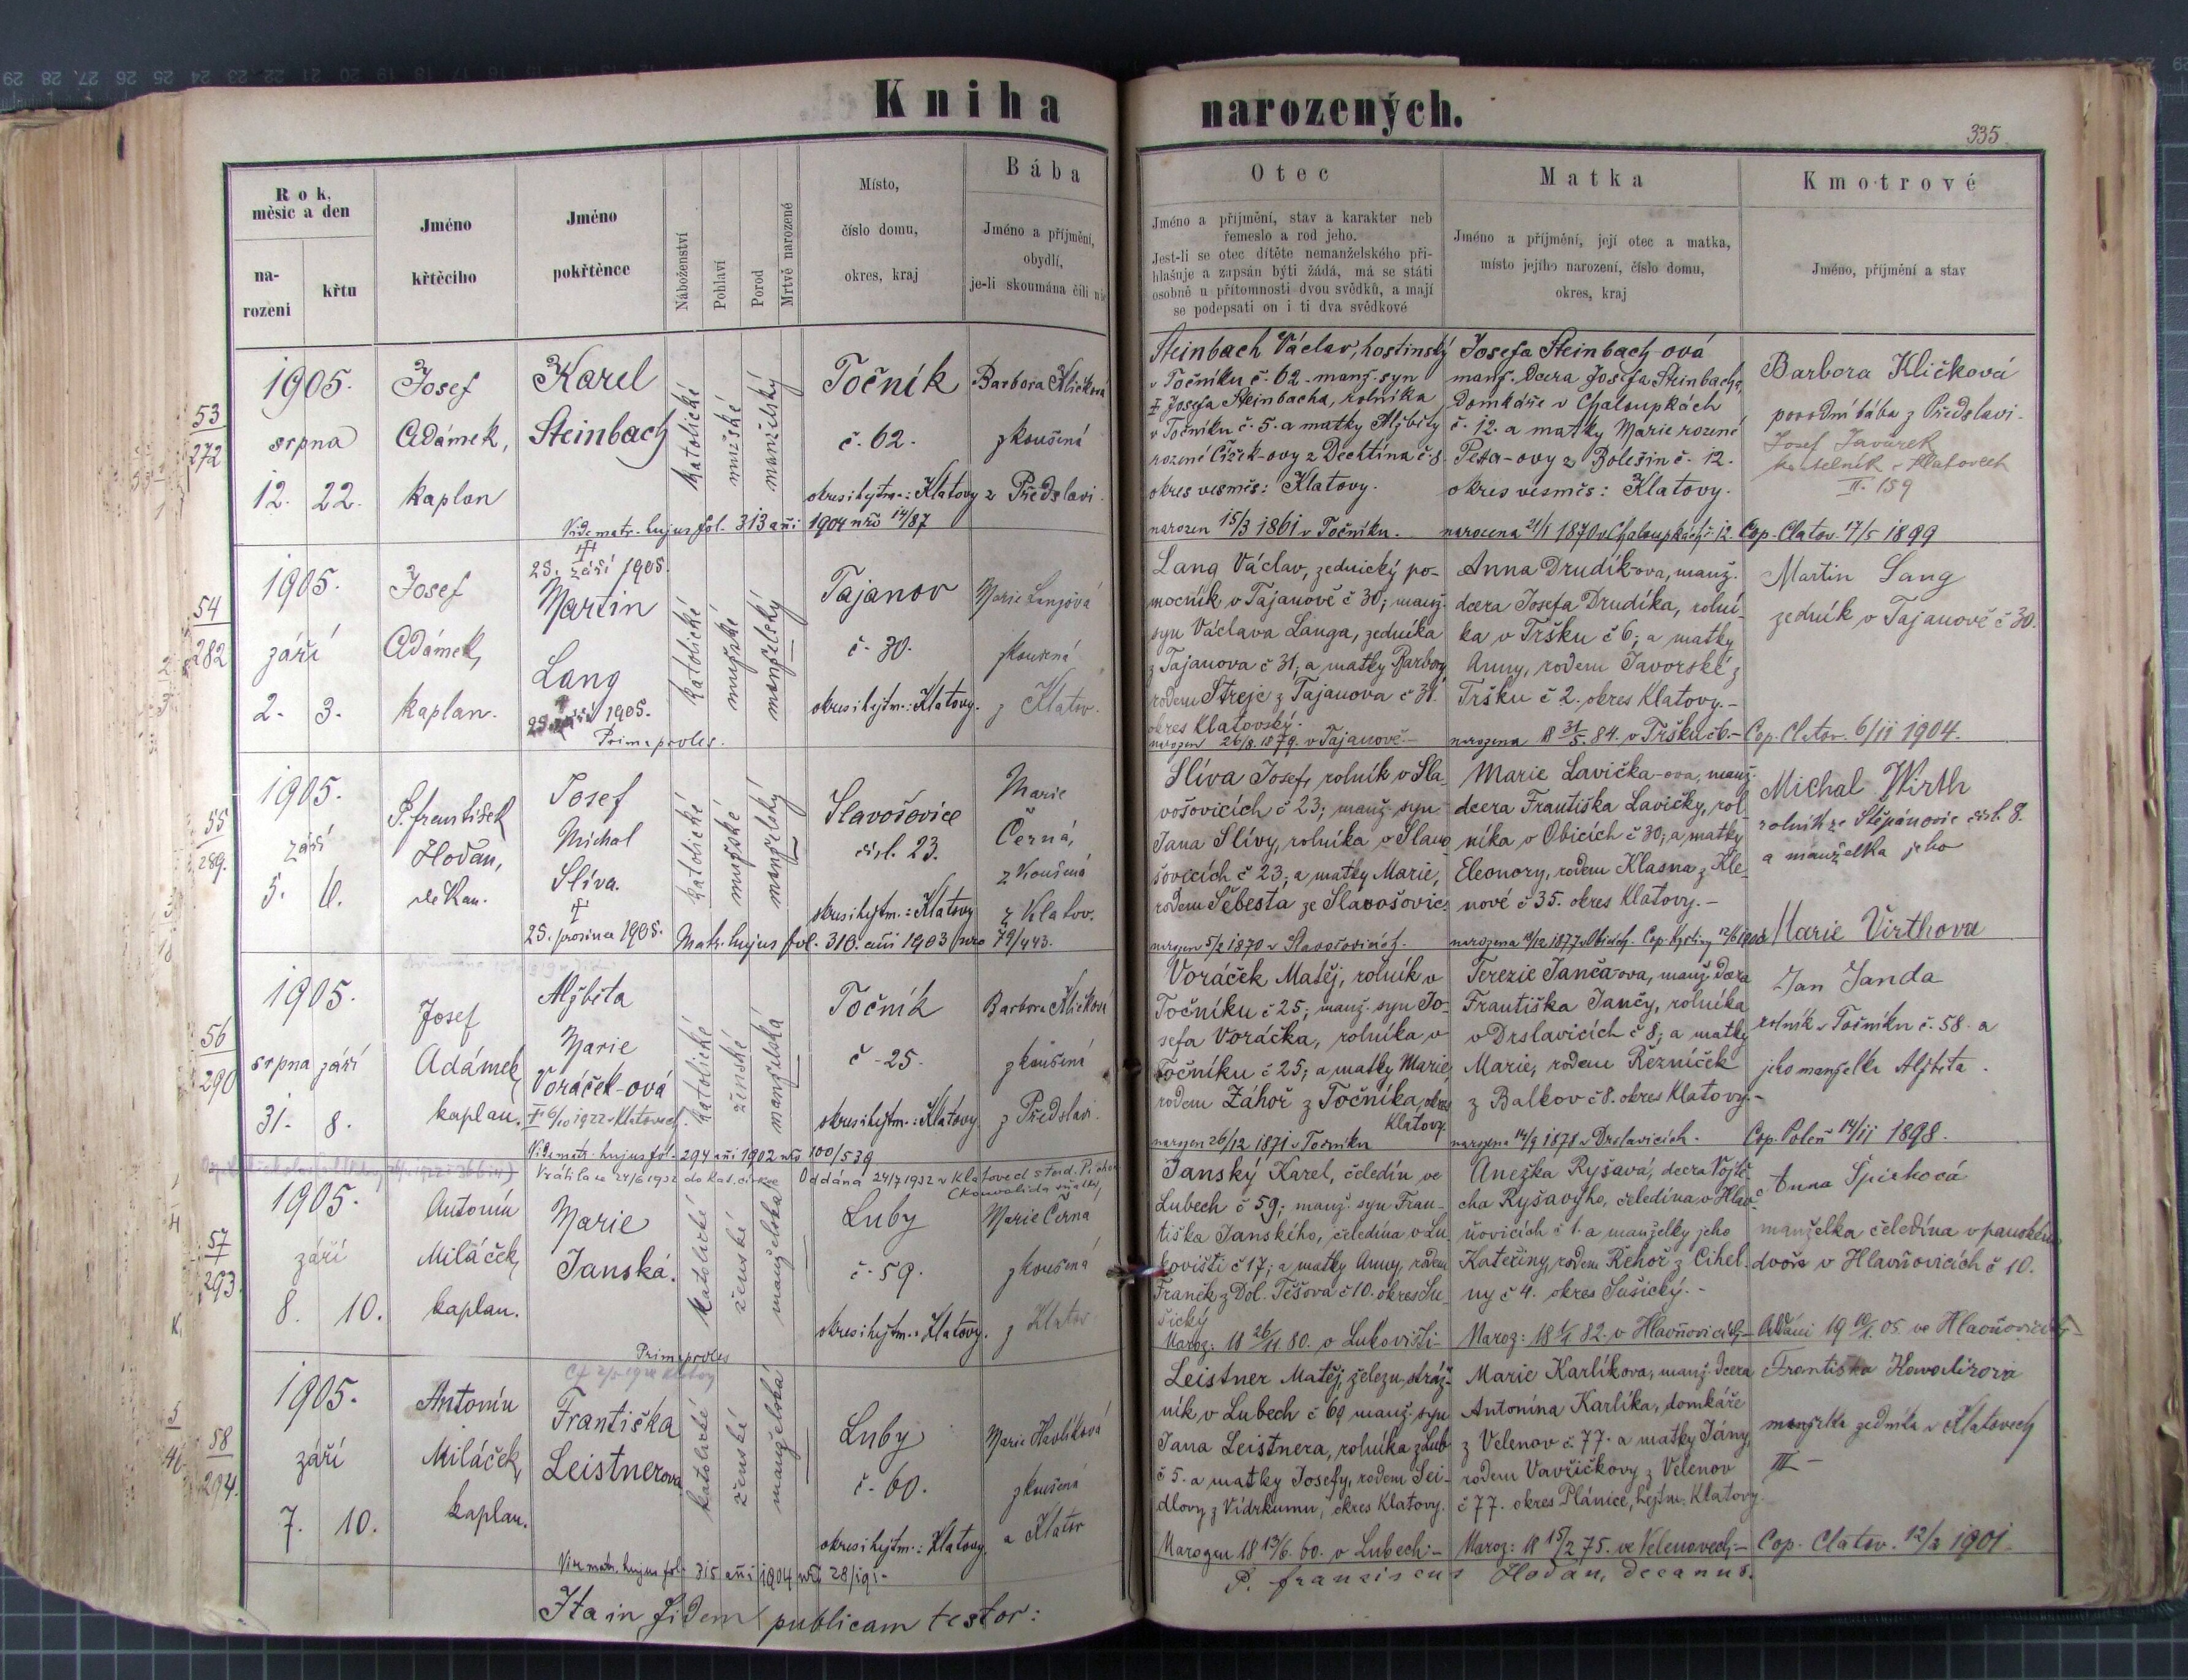 Kniha narozených.
335
Rok, měsíc a den
na-
rozeni
křtu
Jméno
křtěcího
Jméno
pokřtěnce
Náboženství
Pohlaví
Porod
Mrtvě narozené
Místo,
číslo domu,
okres, kraj
Bába
Jméno a příjmění,
obydlí,
je-li skoumána čili
Otec
Jméno a příjmění, stav a karakter neb
řemeslo a rod jeho.
Jest-li se otec dítěte nemanželského při-
hlašuje a zapsán býti žádá, má se státi
osobně u přítomnosti dvou svědků, a mají
se podepsati on i ti dva svědkové
Matka
Jméno a příjmění, její otec a matka,
místo jejího narození, číslo domu,
okres, kraj
Kmotrové
Jméno, příjmění a stav
53
272
1905.
srpna
12. 22.
Josef
Adámek,
kaplan
Karel
Steinbach
katolické
mužské
manželský
Točník
č. 62.
okres i hejtm.: Klatovy
Barbora Kličková
zkoušená
z Předslavi.
Vide matr. hujus fol. 313 ani 1904 nro 14/87
Steinbach Václav, hostinský
v Točníku č. 62 - manž. syn
Josefa Steinbacha, rolníka
v Točníku č. 5. a matky Alžběty
rozené Čížek-ovy z Dechtína č. 8
okres vesměs: Klatovy.
narozen 15/3 1861 v Točníku.
Josefa Steinbach-ová
manž. dcera Josefa Steinbacha,
domkáře v Chaloupkách
č. 12. a matky Marie rozené
Peta-ovy z Bolešin č. 12.
okres vesměs: Klatovy.
narozena 21/1 1870 v Chaloupkách č. 12.
Barbora Kličková
porodní bába z Předslavi.
Josef Javůrek
v Klatovech
II. 159
Cop. Clatov. 17/5 1899
54
282
1905.
září
2. 3.
Josef
Adámek,
kaplan.
25. září 1905.
Martin
Lang
1905.
Prima proles.
katolické
mužské
manželský
Tajanov
č. 30.
okres i hejtm.: Klatovy.
Marie Langová
zkoušená
z Klatov.
Lang Václav, zednický po-
mocník v Tajanově č 30; manž.
syn Václava Langa, zedníka
z Tajanova č 31; a matky Barbory
rodem Strejc z Tajanova č 31.
okres Klatovský.
narozen 26/8. 1879. v Tajanově.-
Anna Drudík-ova, manž.
dcera Josefa Drudíka, rolní-
ka v Tršku č 6; a matky
Anny, rodem Javorské z
Tršku č 2. okres Klatovy.-
narozena 18 31/5. 84. v Tršku č 6.-
Martin Lang
zedník v Tajanově č 30.
Cop. Clatov. 6/11 1904.
55
289.
1905.
září
5. 6.
P. František
Hodan,
děkan.
Josef
Michal
Slíva.
25. prosince 1905.
katolické
mužské
manželský
Slavošovice
čísl. 23.
okres i hejtm.: Klatovy
Marie
Černá,
zkoušená
z Klatov.
Matr. hujus fol. 310. ani 1903 nro 79/443.
Slíva Josef, rolník v Sla-
vošovicích č 23; manž. syn
Jana Slívy, rolníka v Slavo
šovicích č 23; a matky Marie,
rodem Šebesta ze Slavošovic.
narozen 5/2 1870 v Slavošovicích.
Marie Lavička-ova, manž.
dcera Františka Lavičky, rol-
níka v Obicích č 30; a matky
Eleonory, rodem Klasna z Kle-
nové č 35. okres Klatovy.-
Michal Wirth
rolník ze Štěpánovic čísl. 8.
a manželka jeho
Marie Virthova
56
290
1905.
srpna září
31. 8.
Josef
Adámek,
kaplan.
Alžběta
Marie
Voráček-ová
6/10 1922 v Klatovech.
katolické
ženské
manželská
Točník
č. 25.
okres i hejtm.: Klatovy.
Barbora Kličková
zkoušená
z Předslavi.
Vide matr. hujus fol. 294 ani 1902 nro 100/539
Voráček Matěj, rolník v
Točníku č 25; manž. syn Jo-
sefa Voráčka, rolníka v
Točníku č 25; a matky Marie,
rodem Záhoř z Točníka, okres
Klatovy.
narozen 26/12 1871 v Točníku
Terezie Janča-ova, manž. dcera
Františka Jančy, rolníka
v Drslavicích č 8; a matky
Marie, rodem Řezníček
z Balkov č 8. okres Klatovy.-
narozena 14/9 1878 v Drslavicích.
Jan Janda
rolník v Točníku č. 58. a
jeho manželka Alžběta.
Cop. Poleň 14/11 1898.
57
293.
Vrátila se 24/6 1932 do kat. církve
Oddána 24/7 1932 v Klatovech
1905.
září
8. 10.
Antonín
Miláček,
kaplan.
Marie
Janská.
Prima proles
katolické
ženské
manželská
Luby
č. 59.
okres i hejtm.: Klatovy.
Marie Černá
zkoušená
z Klatov
Janský Karel, čeledín ve
Lubech č 59; manž. syn Fran-
tiška Janského, čeledína v Lu-
kovišti č 17; a matky Anny, rodem
Franěk z Dol. Těšova č 10. okres Su-
šický
Naroz: 18 26/11 80. v Lukovišti-
Anežka Ryšavá, dcera Vojtě-
cha Ryšavýho, čeledína v Hlav-
ňovicích č 1. a manželky jeho
Kateřiny, rodem Řehoř z Cihel.
ny č 4. okres Sušický.-
Naroz: 18 82. v Hlavňovicích.-
Anna
manželka čeledína v panském
dvoře v Hlavňovicích č 10.
58
294.
1905.
září
7. 10.
Antonín
Miláček,
kaplan.
Františka
Leistnerova
katolické
ženské
manželská
Luby
č. 60.
okres i hejtm.: Klatovy.
Marie Havlíková
zkoušená
z Klatov
Vide matr. hujus fol. 315 ani 1904 nro 28/191-
Leistner Matěj, železn. stráž-
ník v Lubech č 60 manž. syn
Jana Leistnera, rolníka z Lub
č 5. a matky Josefy, rodem Sei-
dlovy z Vídrkumu, okres Klatovy.
Narozen 18 13/6. 60. v Lubech.-
Marie Karlíkova, manž. dcera
Antonína Karlíka, domkáře
z Velenov č. 77. a matky Jány,
rodem Vavřičkovy z Velenov
č 77. okres Plánice, hejtm. Klatovy.
Naroz: 18 15/2 75. ve Velenovech.-
Františka
manželka zedníka v Klatovech
III -
Cop. Clatov. 12/2 1901.
Ita in fidem publicam testor:
P. Franciscus Hodan, decanus.